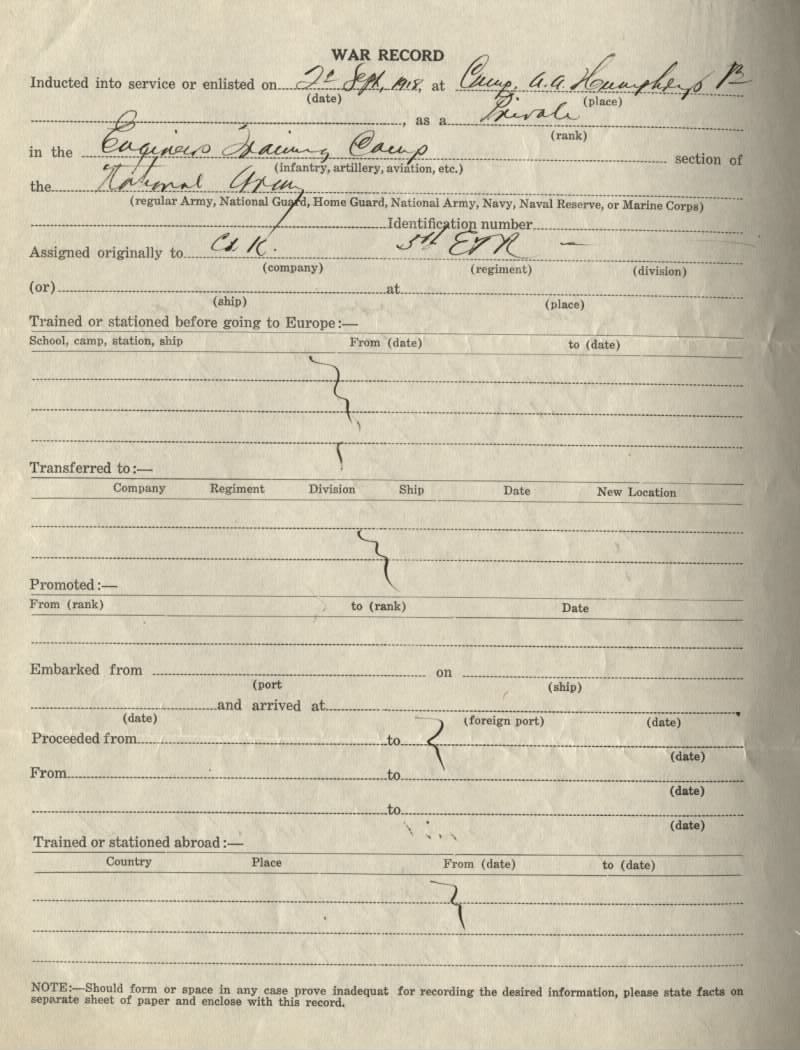 WAR RECORD
Inducted into service or enlisted on Sept, 1918, at Camp. A.A. Humphreys
(date) (place)
, as a Private
(rank)
in the Engineers Training Camp section of
(infantry, artillery, aviation, etc.)
the National Army
(regular Army, National Guard, Home Guard, National Army, Navy, Naval Reserve, or Marine Corps)
Identification number
Assigned originally to Co K. 5th E T R —
(company) (regiment) (division)
(or) at
(ship) (place)
Trained or stationed before going to Europe:—
School, camp, station, ship From (date) to (date)
Transferred to:—
Company Regiment Division Ship Date New Location
Promoted:—
From (rank) to (rank) Date
Embarked from on
(port (ship)
and arrived at
(date) (foreign port) (date)
Proceeded from to
(date)
From to
(date)
to
(date)
Trained or stationed abroad:—
Country Place From (date) to (date)
NOTE:—Should form or space in any case prove inadequat for recording the desired information, please state facts on
separate sheet of paper and enclose with this record.